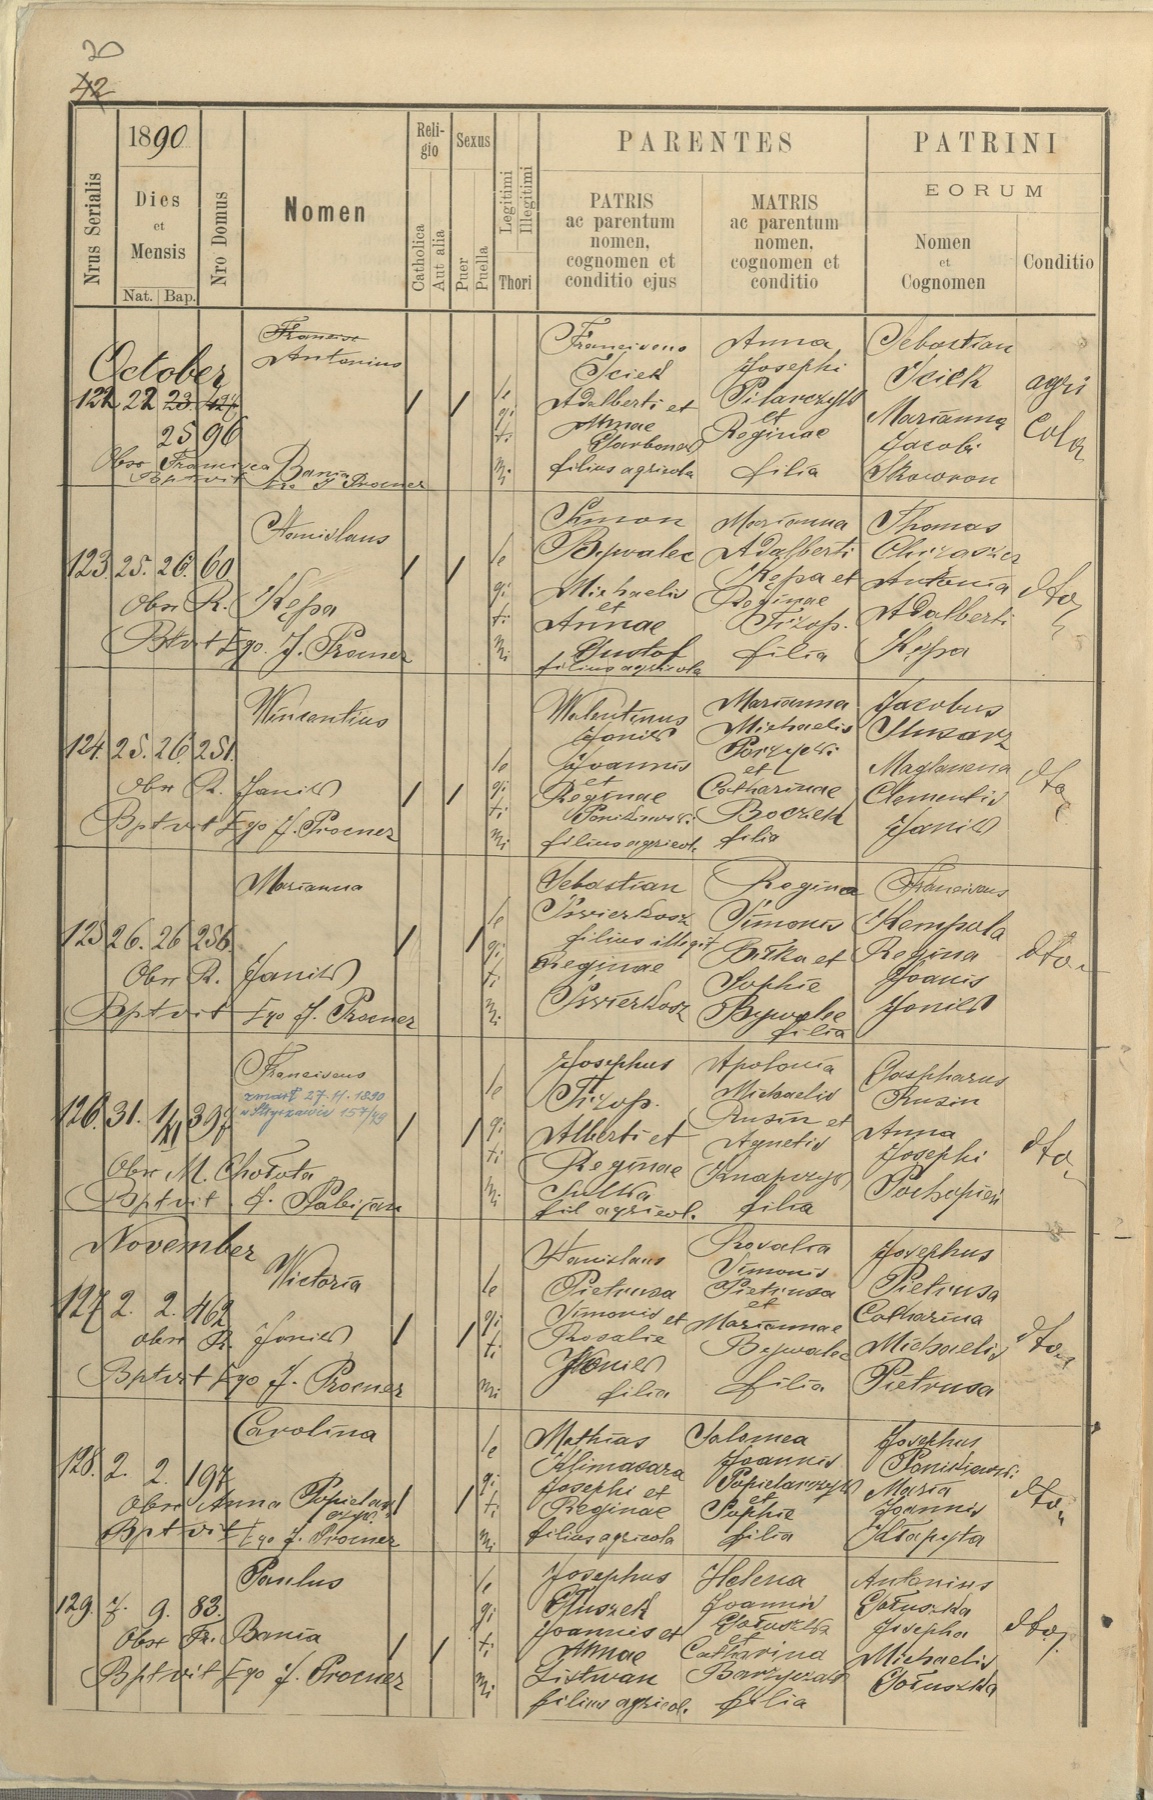 20
42
1890
Nrus Serialis
Dies
et
Mensis
Nat. Bap.
Nro Domus
Nomen
Reli-
gio
Catholica
Aut alia
Sexus
Puer
Puella
Legitimi
Illegitimi
Thori
PARENTES
PATRIS
ac parentum
nomen,
cognomen et
conditio ejus
MATRIS
ac parentum
nomen,
cognomen et
conditio
PATRINI
EORUM
Nomen
et
Cognomen
Conditio
October
122 22 23 427
25 96
Francisc
Antonius
Obsr Francisca Bania
Bptvit J Procner
le
gi
ti
mi
Franciscus
Sciek
Adalberti et
Annae
Garbonas
filius agricola
Anna
Josephi
Pilarczyk
et
Reginae
filia
Sebastian
Sciek
Marianna
Jacobi
Skowron
agri
cola
123 25. 26. 60
Stanislaus
Obsr R. Kępa
Bptvit Ego J. Procner
le
gi
ti
mi
Simon
Bywalec
Michaelis
et
Annae
Chustof
filius agricola
Marianna
Adalberti
Kępa et
Reginae
Fizop.
filia
Thomas
Chrzaszcz
Antonia
Adalberti
Kępa
dto
124. 25. 26. 251.
Wincentius
Obsr R. Janik
Bptvit Ego J. Procner
le
gi
ti
mi
Walentinus
Janik
Joannis
et
Reginae
Ponikows.
filius agricol.
Marianna
Michaelis
Porzycki
et
Catharinae
Boczek
filia
Jacobus
Slusarz
Magdalena
Clementis
Janik
dto
125 26. 26 256.
Marianna
Obsr R. Janik
Bptvit Ego J. Procner
le
gi
ti
mi
Sebastian
Swierkosz
filius illegit
Reginae
Swierkosz
Regina
Simonis
Bitka et
Sophie
Bywalec
filia
Franciscus
Kempala
Regina
Joanis
Janik
dto
126. 31. 1/XI 397
Franciscus
zmarł 27.11.1890
w Stryszawie 157/49
Obsr M. Chołota
Bptvit J. Pabijan
le
gi
ti
mi
Josephus
Fizop.
Alberti et
Reginae
Sulka
fil agricol.
Apolonia
Michaelis
Rusin et
Agnetis
Knapczyk
filia
Gaspharus
Rusin
Anna
Josephi
Pochopień
dto
November
127 2. 2. 462
Wictoria
Obsr R. Janik
Bptvit Ego J. Procner
le
gi
ti
mi
Stanislaus
Pietrusa
Simonis et
Rosalie
Janik
filia
Rosalia
Simonis
Pietrusa
et
Mariannae
Bywalec
filia
Josephus
Pietrusa
Catharina
Michaelis
Pietrusa
dto
128. 2. 2. 197
Carolina
Obsr Anna Popielar
czyk.
Bptvit Ego J. Procner
le
gi
ti
mi
Mathias
Klimasara
Josephi et
Reginae
filius agricola
Salomea
Joannis
Popielarczyk
et
Sophie
filia
Josephus
Ponikowski
Maria
Joannis
Kłapyta
dto
129. 7. 9. 83.
Paulus
Obsr Fr. Bania
Bptvit Ego J. Procner
le
gi
ti
mi
Josephus
Głuszek
Joannis et
Annae
Listwan
filius agricol.
Helena
Joannis
Gołuszka
et
Catharina
filia
Antonius
Gołuszka
Josepha
Michaelis
Gołuszka
dto